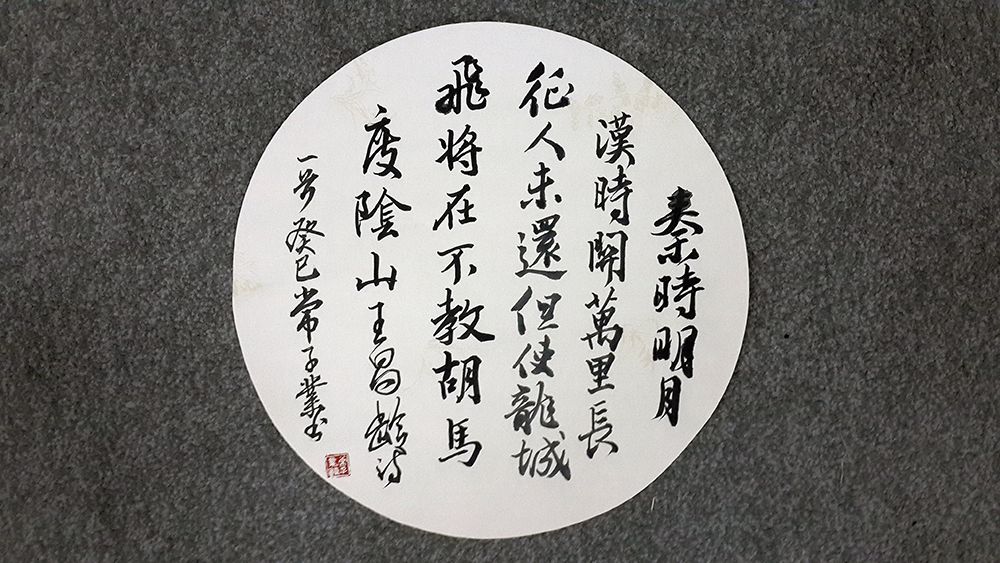 秦時明月
漢時関萬里長
征人未還但使龍城
飛將在不教胡馬
度陰山王昌齡詩
一首癸巳常子業书